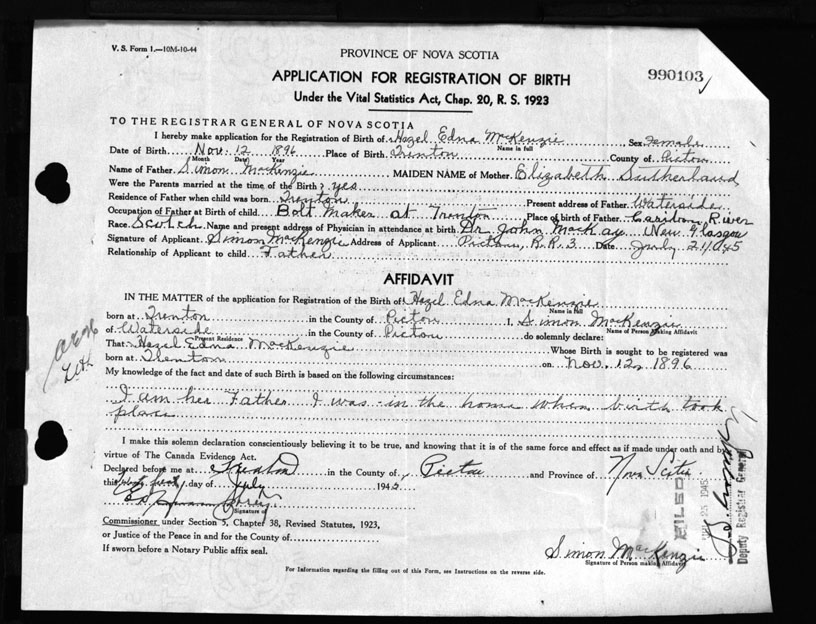 V. S. Form 1.—10M-10-44
PROVINCE OF NOVA SCOTIA
990103
APPLICATION FOR REGISTRATION OF BIRTH
Under the Vital Statistics Act, Chap. 20, R. S. 1923
TO THE REGISTRAR GENERAL OF NOVA SCOTIA
I hereby make application for the Registration of Birth of Hazel Edna MacKenzie Sex Female
Name in full
Date of Birth Nov. 12 1896 Place of Birth Trenton County of Pictou
Month Date Year
Name of Father Simon MacKenzie MAIDEN NAME of Mother Elizabeth Sutherland
Were the Parents married at the time of the Birth? yes
Residence of Father when child was born Trenton Present address of Father Waterside
Occupation of Father at Birth of child Bolt Maker at Trenton Place of birth of Father Caribou River
Race Scotch Name and present address of Physician in attendance at birth Dr John MacKay New Glasgow
Signature of Applicant Simon MacKenzie Address of Applicant Pictou, R.R.3 Date July 21 1945
Relationship of Applicant to child Father
AFFIDAVIT
IN THE MATTER of the application for Registration of the Birth of Hazel Edna MacKenzie
Name in full
born at Trenton in the County of Pictou I, Simon MacKenzie
Name of Person Making Affidavit
of Waterside in the County of Pictou do solemnly declare:
Present Residence
That Hazel Edna MacKenzie Whose Birth is sought to be registered was
born at Trenton on Nov. 12, 1896
My knowledge of the fact and date of such Birth is based on the following circumstances:
I am her Father I was in the home when birth took
place
I make this solemn declaration conscientiously believing it to be true, and knowing that it is of the same force and effect as if made under oath and by
virtue of The Canada Evidence Act.
Declared before me at Trenton in the County of Pictou and Province of Nova Scotia
this day of July 1945
Signature of
Commissioner under Section 5, Chapter 38, Revised Statutes, 1923,
or Justice of the Peace in and for the County of
If sworn before a Notary Public affix seal.
Simon MacKenzie
Signature of Person making Affidavit
For Information regarding the filling out of this Form, see Instructions on the reverse side.
FILED
25 1945
Deputy Registrar General